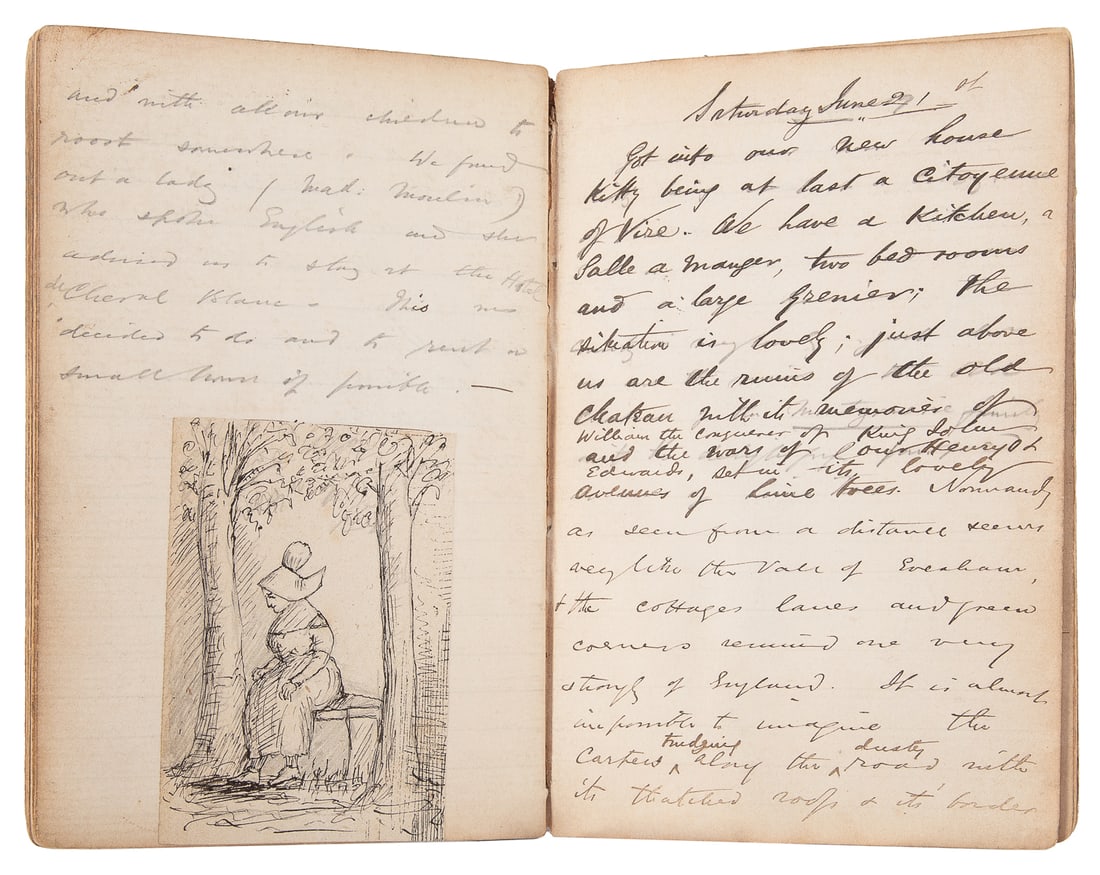 and with all our children to
roost somewhere. We found
out a lady (Mad: Moulin)
who spoke English and she
advised us to stay at the Hotel
du Cheval Blanc - This we
decided to do and to rent a
small house if possible. —
Saturday June 21st
Got into our new house
Kitty being at last a Citoyenne
of Vire. We have a Kitchen, a
Salle a Manger, two bed rooms
and a large Grenier; The
situation is lovely; just above
us are the ruins of the old
Chateau with its memories of
William the Conqueror of King John
and the wars of our Henry &
Edwards, set in its lovely
avenues of lime trees. Normandy
as seen from a distance seems
very like the Vale of Evesham,
& the cottages lanes and green
corners remind one very
strongly of England. It is almost
impossible to imagine the
trudging dusty
Carters along the road with
its thatched roofs & its border